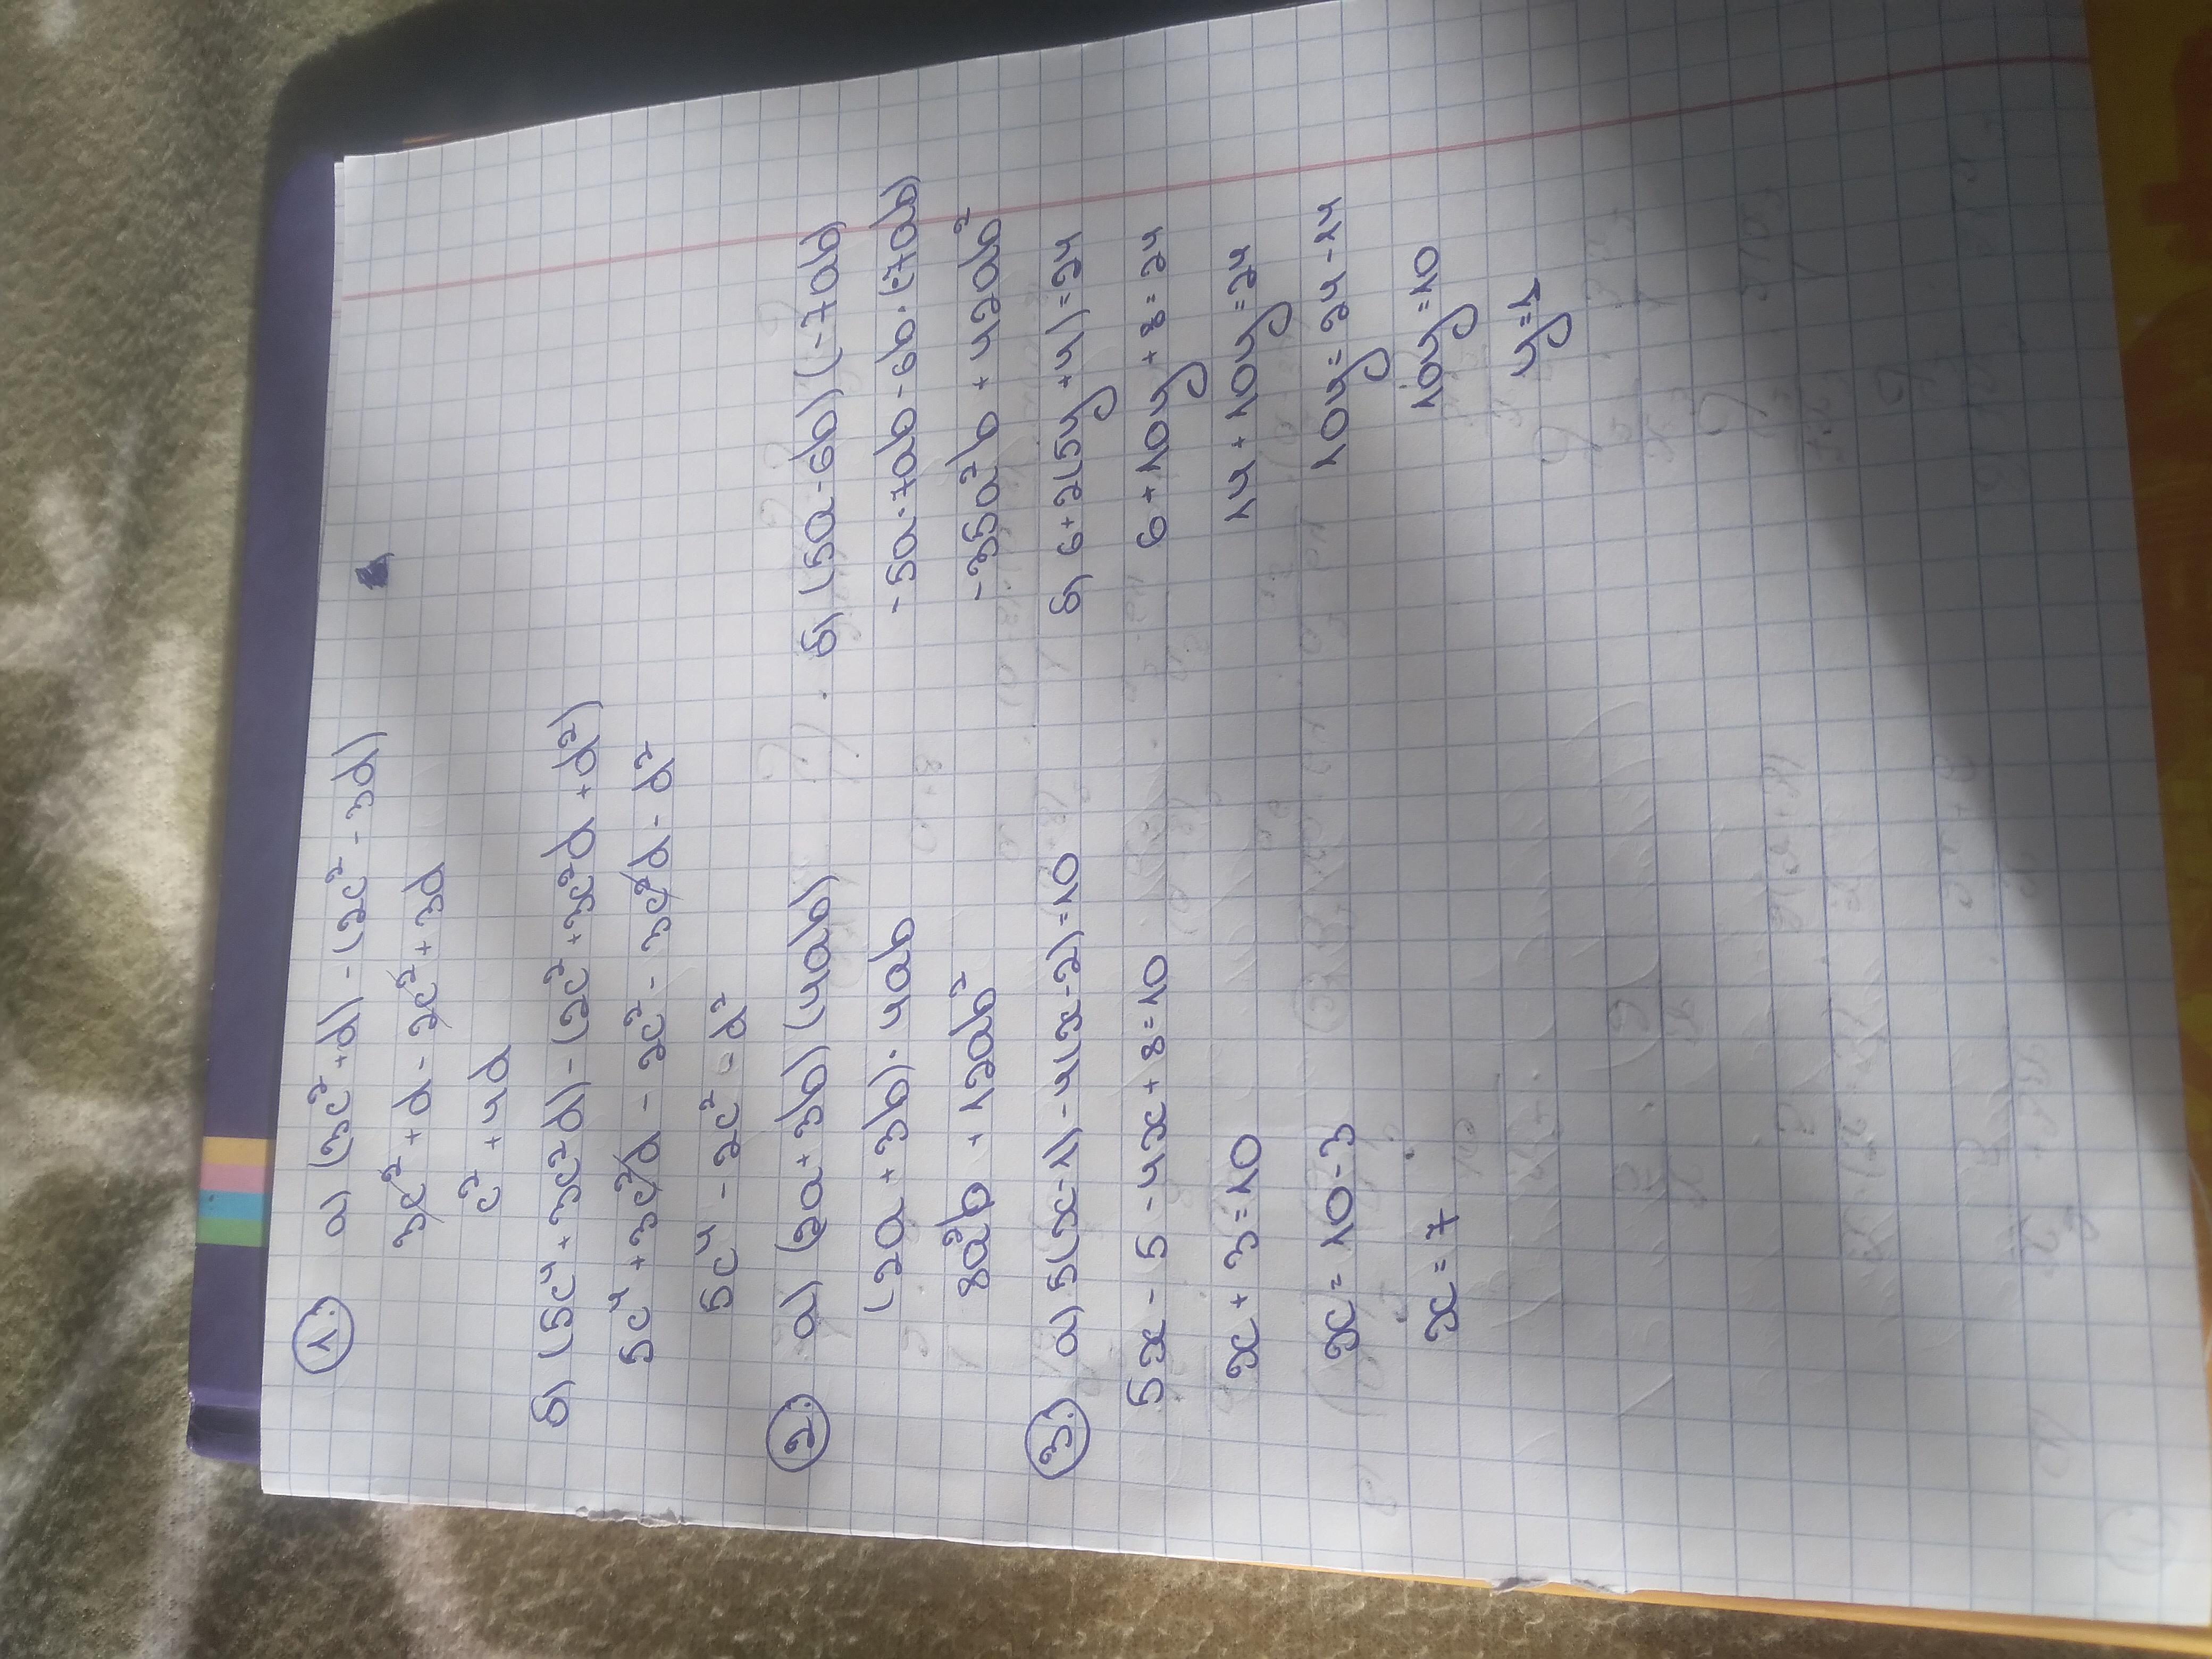 1. а) (3c² + d) - (2c² - 3d)
3c² + d - 2c² + 3d
c² + 4d
б) (5c⁴ + 3c²d) - (2c² + 3c²d + d²)
5c⁴ + 3c²d - 2c² - 3c²d - d²
5c⁴ - 2c² - d²
2. а) (2a + 3b) (4ab)
(2a + 3b) · 4ab
8a²b + 12ab²
б) (5a - 6b) (-7ab)
-5a · 7ab - 6b · (-7ab)
-35a²b + 42ab²
3. а) 5(x - 1) - 4(x - 2) = 10
5x - 5 - 4x + 8 = 10
x + 3 = 10
x = 10 - 3
x = 7
б) 6 + 2(5y + 4) = 24
6 + 10y + 8 = 24
14 + 10y = 24
10y = 24 - 14
10y = 10
y = 1